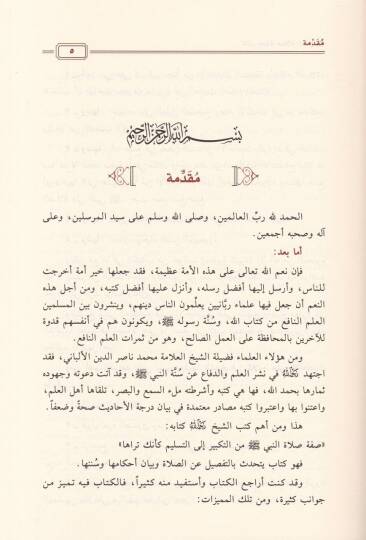 مُقدّمة
٥
بسم الله الرحمن الرحيم
مُقدَّمة
الحمد لله ربِّ العالمين، وصلى الله وسلم على سيد المرسلين، وعلى
آله وصحبه أجمعين.
أما بعد:
فإن نعم الله تعالى على هذه الأمة عظيمة، فقد جعلها خير أمة أخرجت
للناس، وأرسل إليها أفضل رسله، وأنزل عليها أفضل كتبه، ومن أجل هذه
النعم أن جعل فيها علماء ربَّانيين يعلّمون الناس دينهم، وينشرون بين المسلمين
العلم النافع من كتاب الله، وسُنَّة رسوله ﷺ، ويكونون هم في أنفسهم قدوة
للآخرين بالمحافظة على العمل الصالح، وهو من ثمرات العلم النافع.
ومن هؤلاء العلماء فضيلة الشيخ العلامة محمد ناصر الدين الألباني، فقد
اجتهد رَحِمَهُ اللهُ في نشر العلم والدفاع عن سُنَّة النبي ﷺ، وقد آتت دعوته وجهوده
ثمارها بحمد الله، فها هي كتبه وأشرطته ملء السمع والبصر، تلقاها أهل العلم،
واعتنوا بها واعتبروا كتبه مصادر معتمدة في بيان درجة الأحاديث صحةً وضعفاً.
هذا ومن أهم كتب الشيخ رَحِمَهُ اللهُ كتابه:
«صفة صلاة النبي ﷺ من التكبير إلى التسليم كأنك تراها»
فهو كتاب يتحدث بالتفصيل عن الصلاة وبيان أحكامها وسُننها.
وقد كنت أراجع الكتاب وأستفيد منه كثيراً، فالكتاب فيه تميز من
جوانب كثيرة، ومن تلك المميزات: